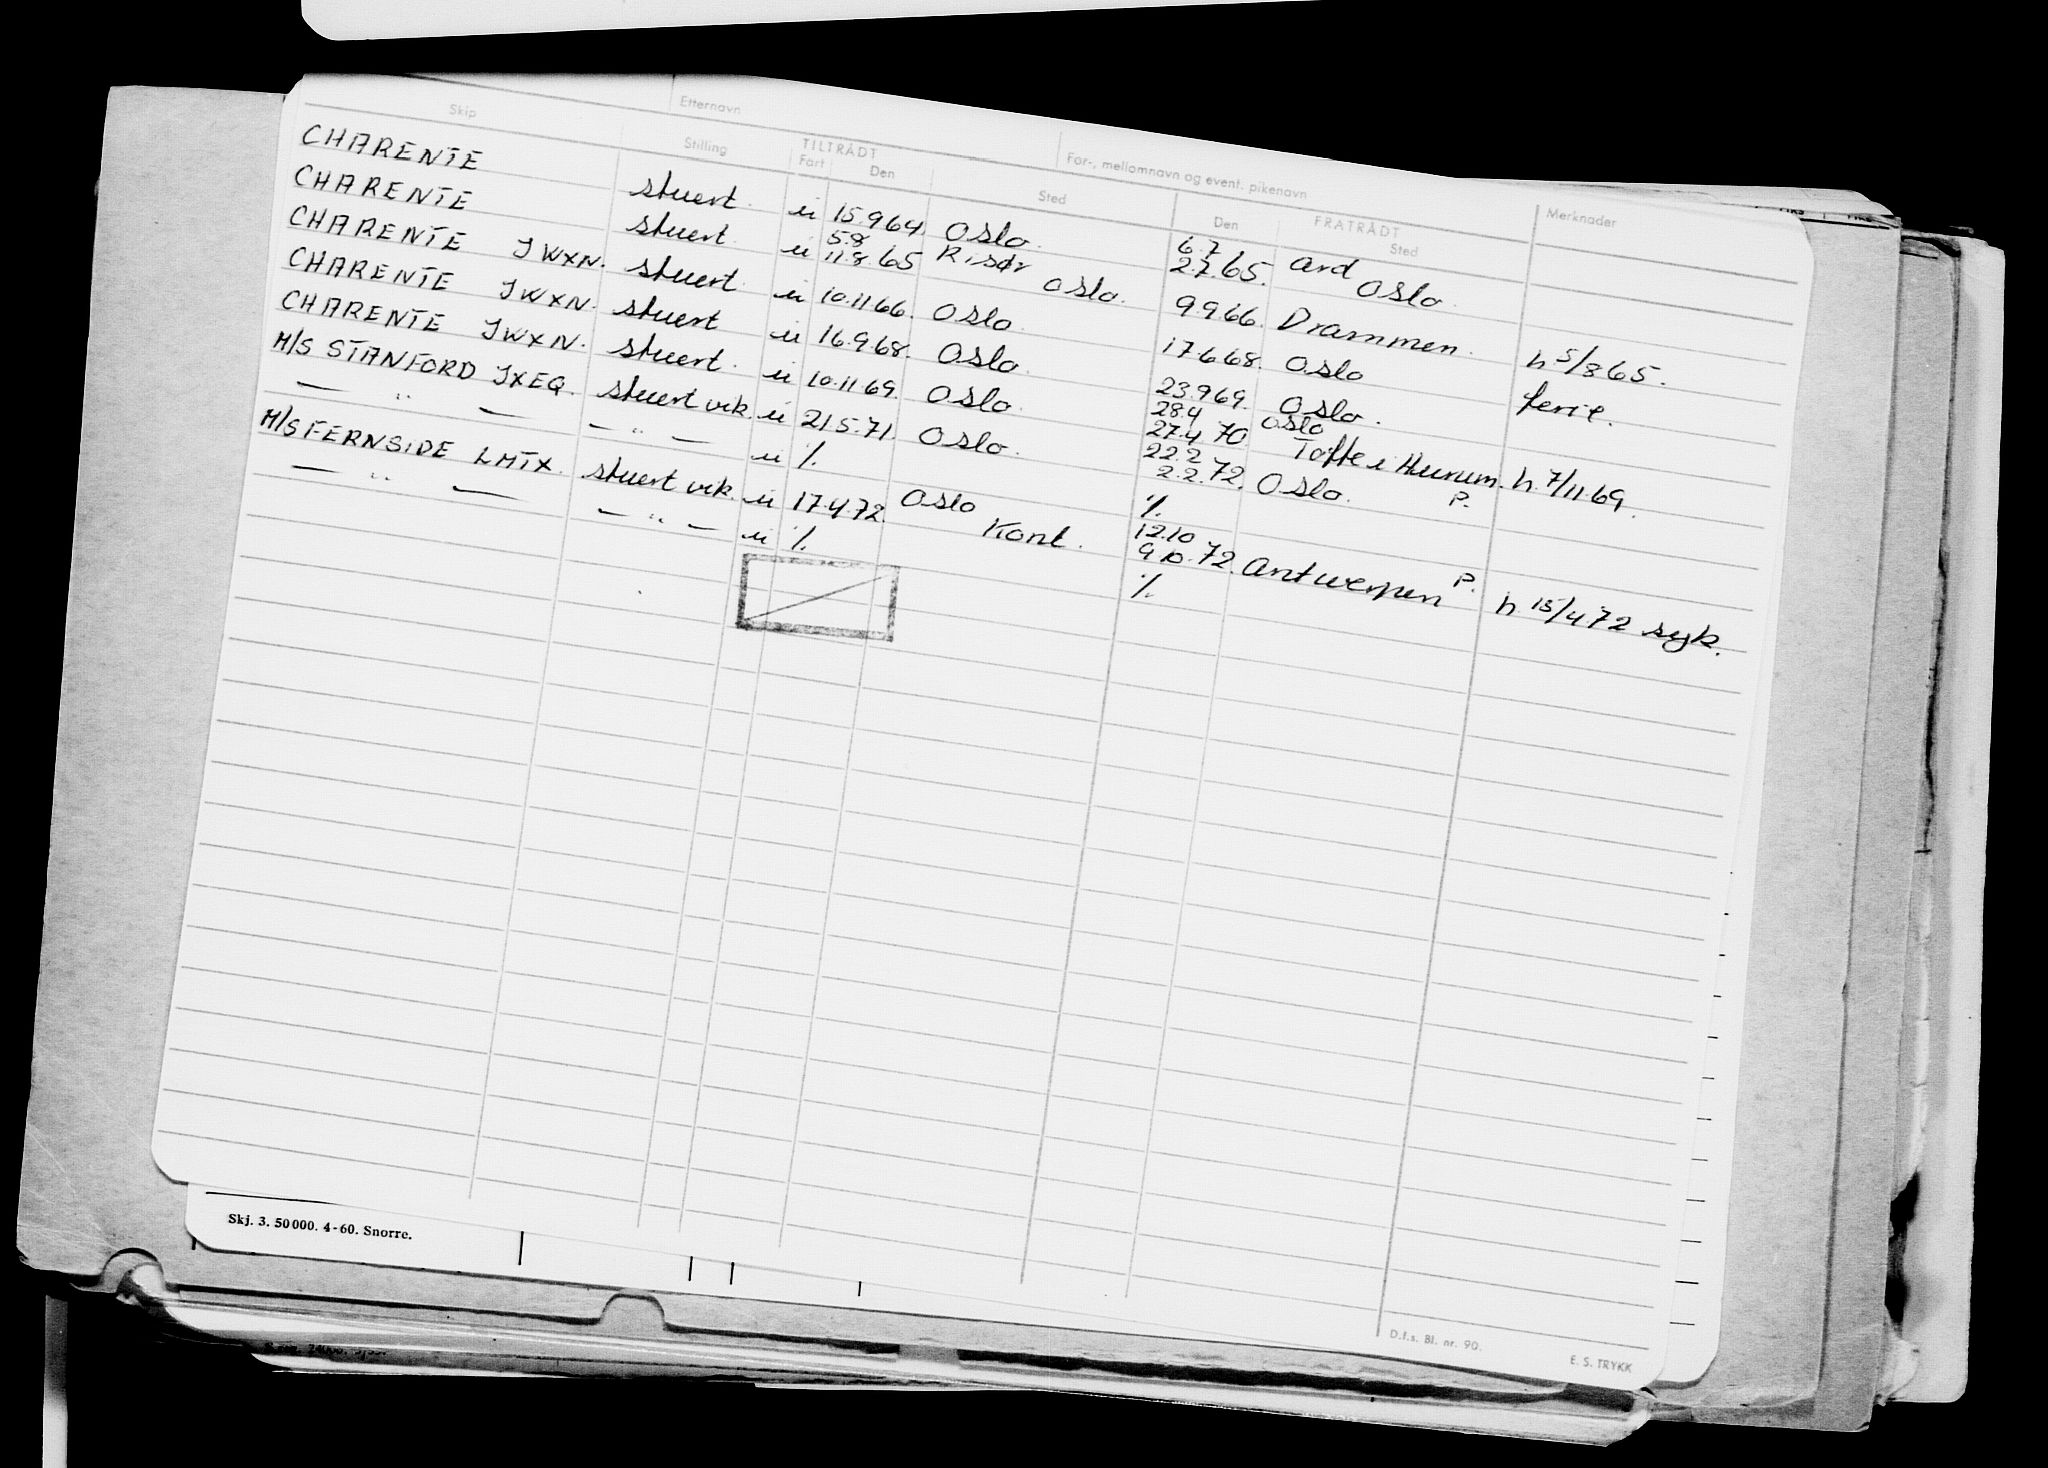 Etternavn
For-, mellomnavn og event. pikenavn
Skip Stilling TILTRÅDT Fart Den Sted FRATRÅDT Den Sted Merknader
CHARENTE stuert. u 15.9.64 Oslo. 6.7 2.7.65. Ard Oslo.
CHARENTE stuert. u 5.8 11.8.65 Risør Oslo. 9.9.66. Drammen. h 5/8 65.
CHARENTE JWXN. stuert. u 10.11.66. Oslo. 17.6.68. Oslo ferie.
CHARENTE JWXN. stuert u 16.9.68. Oslo. 23.9.69. Oslo.
CHARENTE JWXN. stuert. u 10.11.69. Oslo. 28.4 27.4 70 Oslo Tofte i Hurum. h. 7/11.69.
M/S STANFORD JXEQ. stuert vik. u 21.5.71. Oslo. 22.2 2.2.72. Oslo. P.
— " — — " — u %. %.
M/S FERNSIDE LMTX. stuert vik. u 17.4.72. Oslo Kont. 12.10 9.10.72. Antwerpen P. h 15/4 72 syk.
— " — — " — u %. %.
Skj. 3. 50 000. 4-60. Snorre.
D.f.s. Bl. nr. 90.
E. S. TRYKK